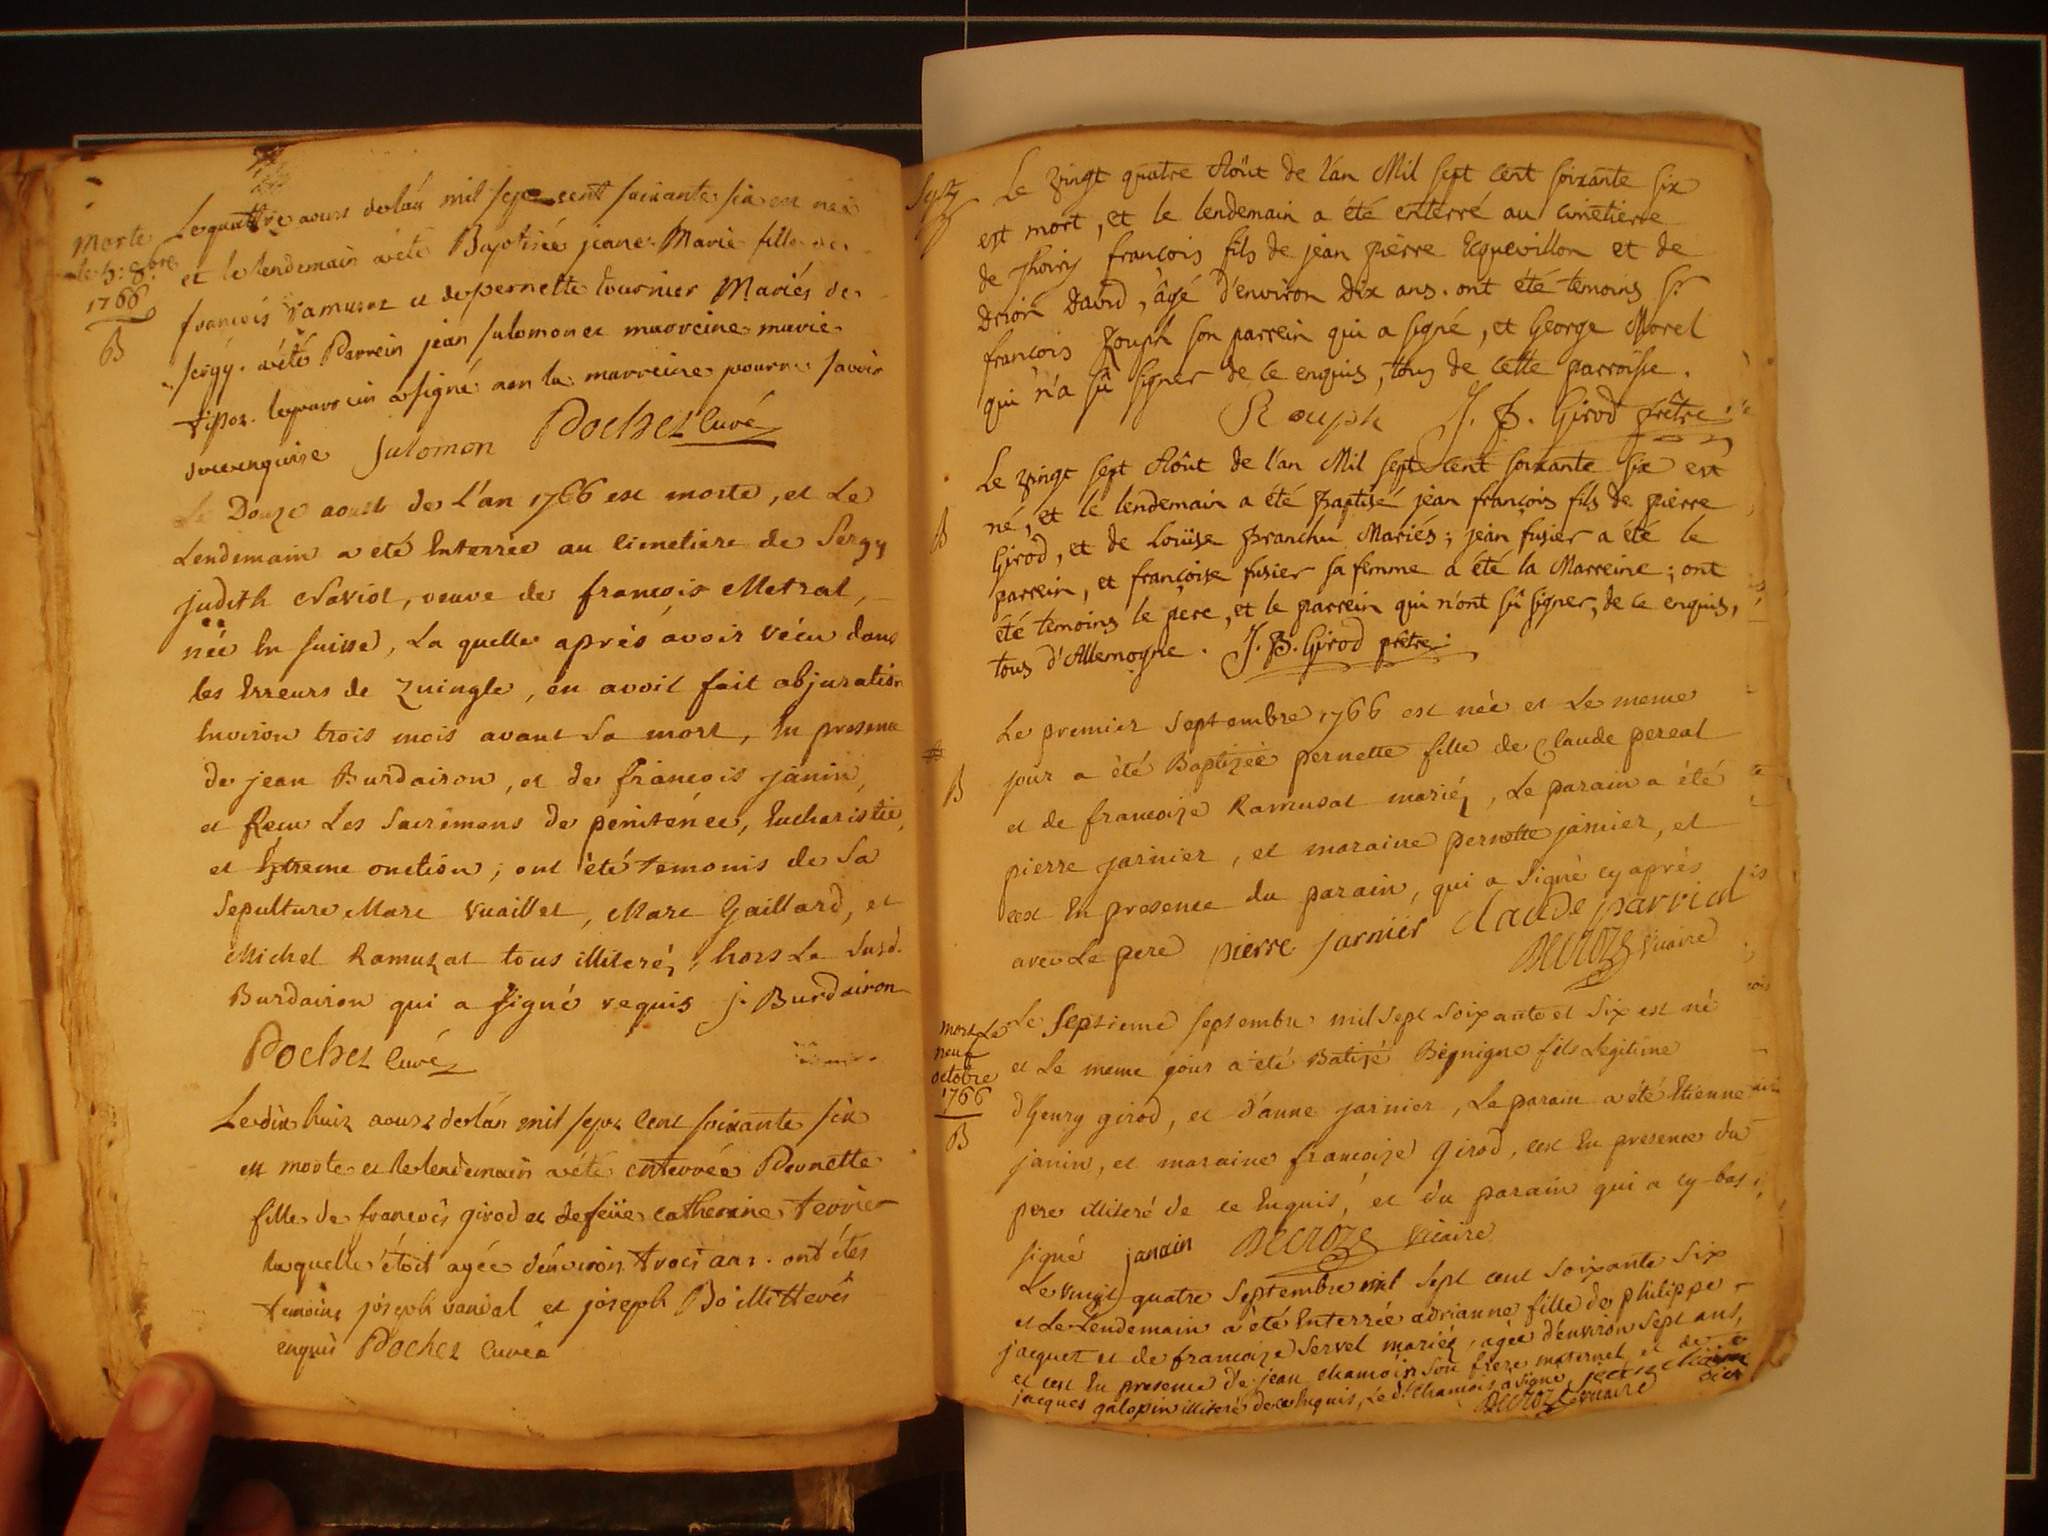 Morte
le 5: 8bre
1766
B
Le quattre aoust de lán mil sept cent soixante six est neé
et le lendemain aété Baptiseé jeane Marie fille de
françois Ramusaz et de pernette tournier Mariés de
sergÿ. aété Parrein jean salomon et marreine marie
tissot. le parrein a signé non la marreine pour ne savoir
de ce enquise Salomon Pochet Curé
Le Douze aoust de L'an 1766 est morte, et Le
Lendemain a été Enterrée au Cimetiere de Sergy
judith David, veuve de françois Metral,
née En suisse, La quelle aprés avoir vécu dans
les Erreurs de Zuingle, en avoit fait abjuration
Environ trois mois avant Sa mort, En presence
de jean Burdairon, et de françois janin,
et Reçu Les Sacrémens de peniténce, Eucharistie,
et Extreme onction; ont été temonis de Sa
Sepulture Marc Vuaillet, Marc Gaillard, et
Michel Ramuzat tous illiteréz, hors Le Susd.
Burdairon qui a signé requis J. Burdairon
Pochet Curé
Le dix huit aoust de lán mil sept cent soixante six
est morte et le lendemain aété enterrée Pernette
fille de françois girod et de feüe catherine terrier
la quelle étoit agée d'environ trois ans. ont étés
temoins joseph et joseph
enquis Pochet Curé
Le vingt quatre Aôut de l'an Mil sept cent soixante six
est mort, et le lendemain a été enterré au cimetierre
de Thoiry françois fils de jean pierre Ecquevillon et de
Drion David, âgé d'environ Dix ans. ont été temoins Sr
françois Rouph son parrein qui a signé, et George Morel
qui n'a sû signer de ce enquis, tous de cette parroisse.
Rouph J. B. Girod prêtre
B
Le vingt sept Aôut de l'an Mil sept cent soixante six est
né, et le lendemain a été Baptisé jean françois fils de pierre
Girod, et de Loüise Branchu Mariés; jean fusier a été le
parrein, et françoise fusier sa femme a été la Marreine; ont
été temoins le pere, et le parrein qui n'ont sû signer, de ce enquis,
tous d'Allemogne. J. B. Girod prêtre.
B
Le premier Septembre 1766 est née et Le meme
jour a été Baptizée pernette fille de Claude pereal
et de françoize Ramusat mariéz, Le parain a été
pierre jarnier, et maraine pernette jarnier, et
cest En presence du parain, qui a Signé cy aprés
avec Le pere pierre jarnier claude parrial
DECROZE Vicaire
mort Le
neuf
octobre
1766
B
Le Septieme septembre mil sept soixante et Six est né
et Le meme jour a été Batizé Bégnigne fils Legitime
d'henry girod, et d'anne jarnier, Le parain a été Etienne
janin, et maraine françoize Girod, cest En presence du
pere illiteré de ce Enquis, et du parain qui a cy-bas
signé janain DECROZE Vicaire
Le vingt quatre Septembre mil sept cent soixante Six
et Le Lendemain a été Enterrée adrianne fille de philippe
jacquet et de françoize Servel mariéz, agée d'environ Sept ans,
et cest En presence de jean chamoin son frere maternel et de
jacques galopin illiteré de ce Enquis, Le d. chamois a signé
DECROZE Vicaire